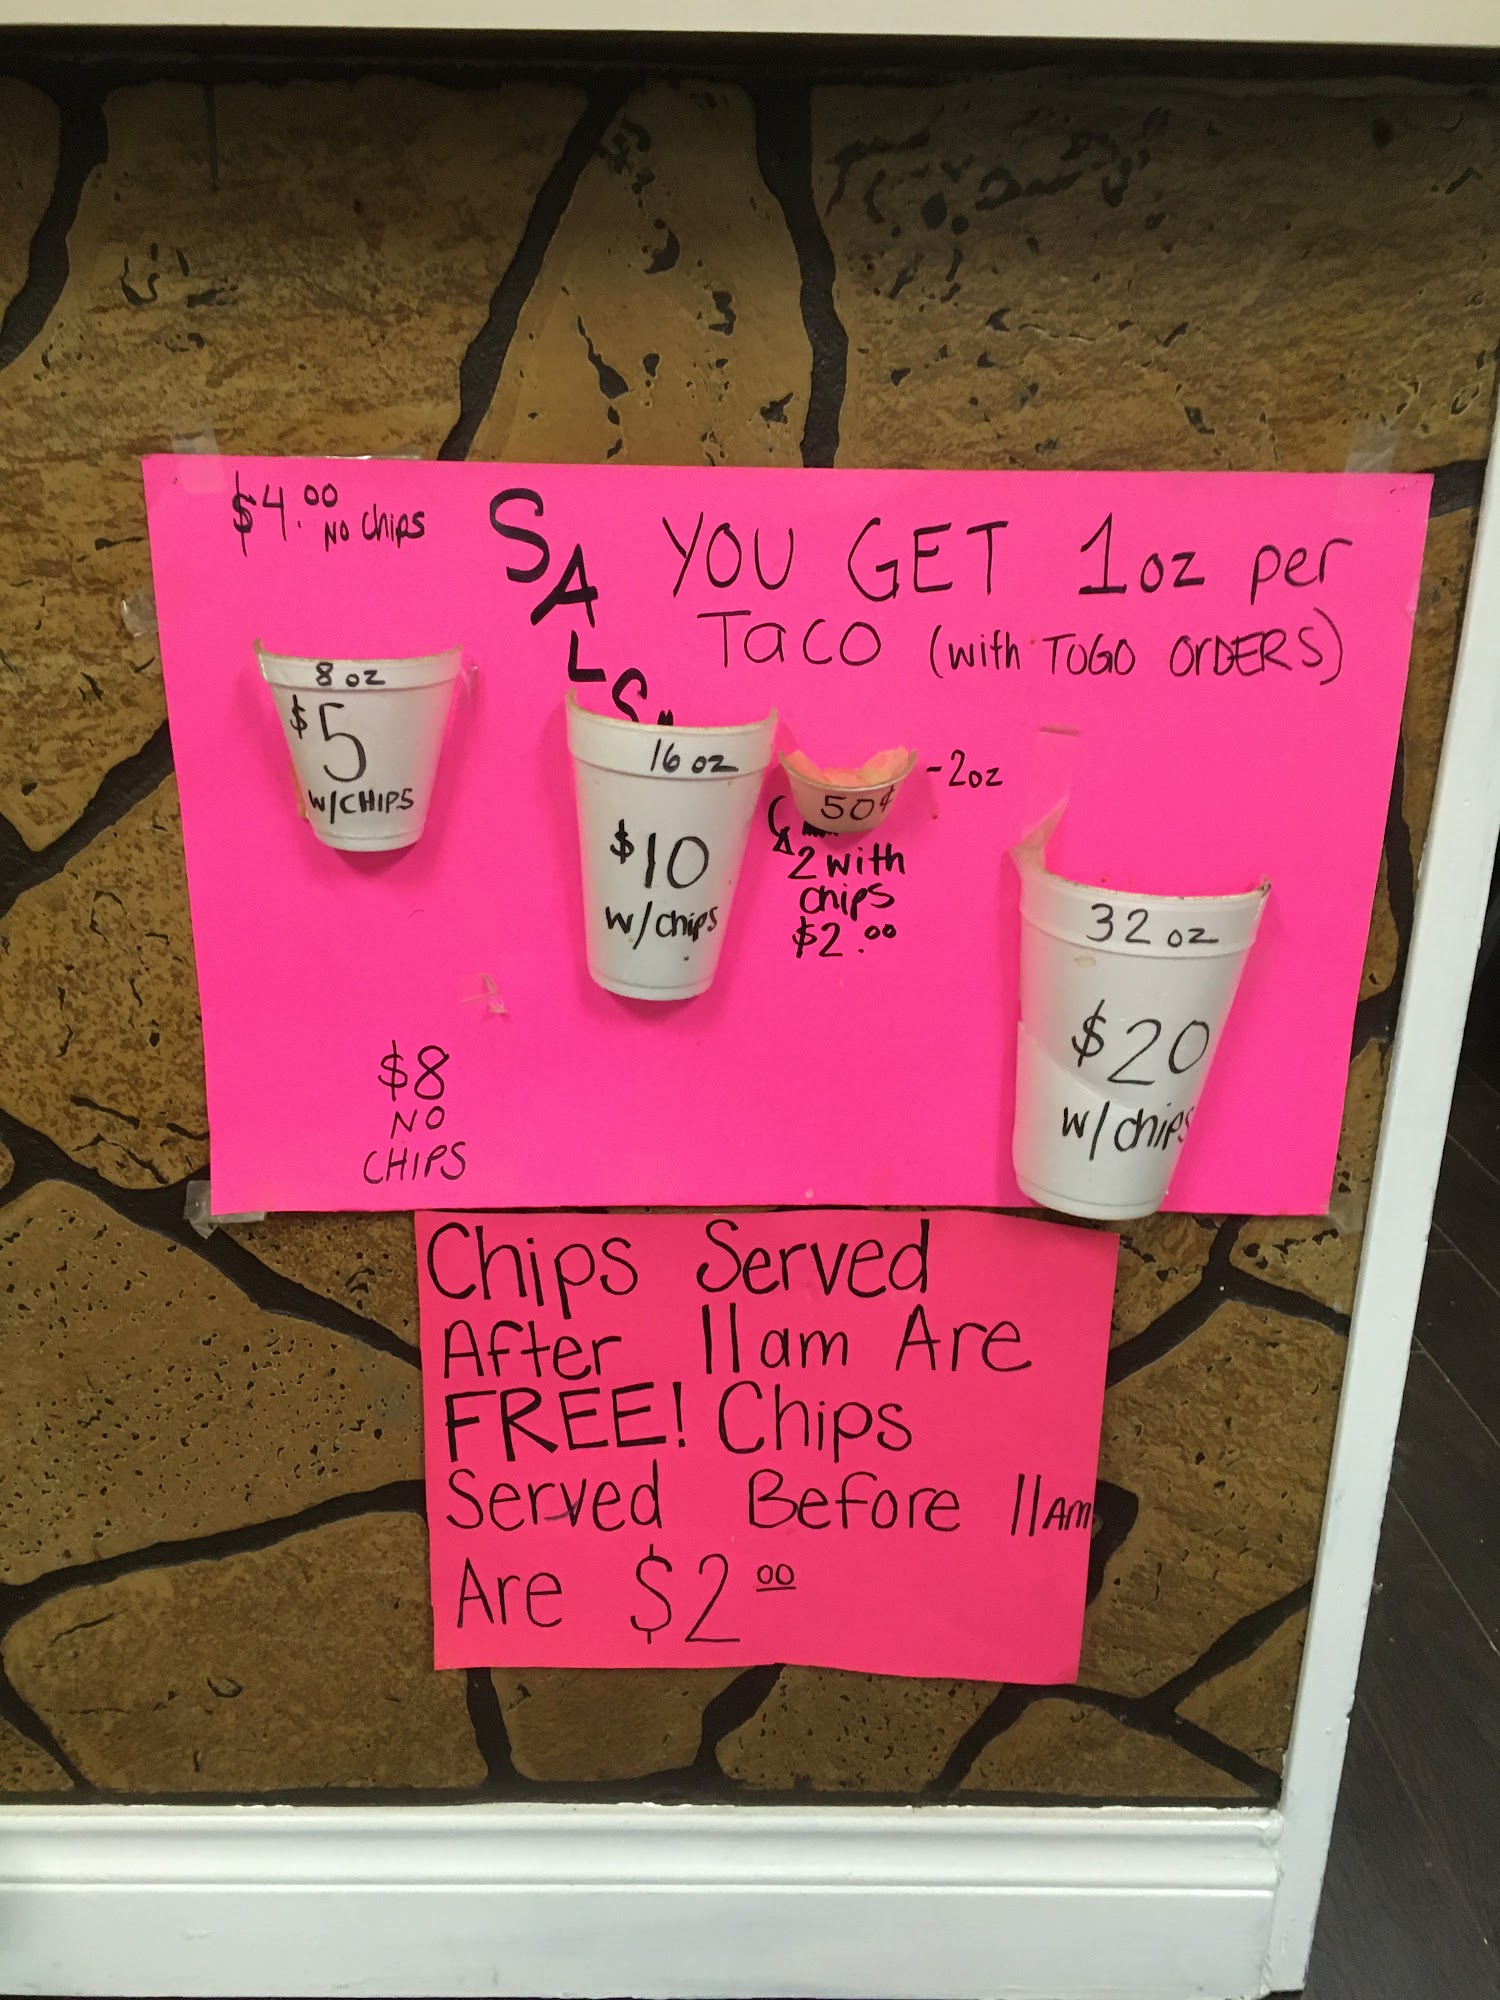 $4.00
No chips
SALS
YOU GET 1oz per
Taco (with TOGO ORDERS)
8 oz
$5
W/CHIPS
16 oz
$10
w/chips
50¢
-2oz
2 with
chips
$2.00
32 oz
$20
w/chips
$8
NO
CHIPS
Chips Served
After 11am Are
FREE! Chips
Served Before 11AM
Are $2 00